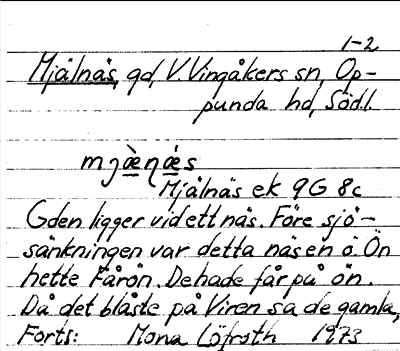 1-2
Mjälnäs, gd, V. Vingåkers sn, Op-
punda hd, Södl.
mjæ̀ṇǽs
Mjälnäs ek 9G 8c
Gden ligger vid ett näs. Före sjö-
sänkningen var detta näs en ö. Ön
hette Fårön. De hade får på ön.
Då det blåste på Viren sa de gamla,
Forts: Mona Löfroth 1973